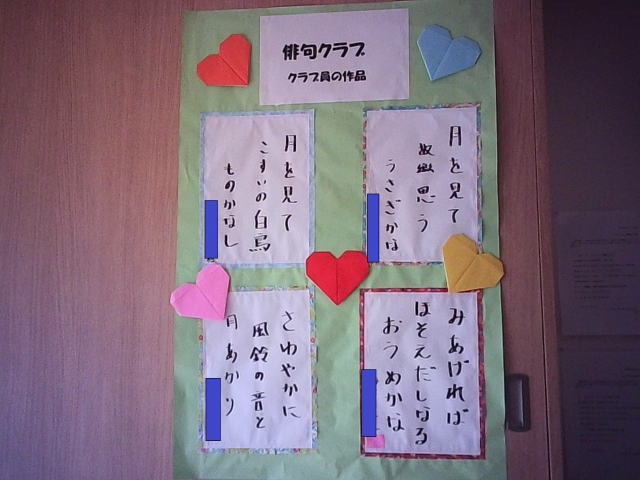 俳句クラブ
クラブ員の作品
月を見て
思う
うさぎかな
月を見て
こすいの白鳥
ものかなし
みあげれば
ほそえだしなる
おうめかな
さわやかに
風鈴の音と
月あかり